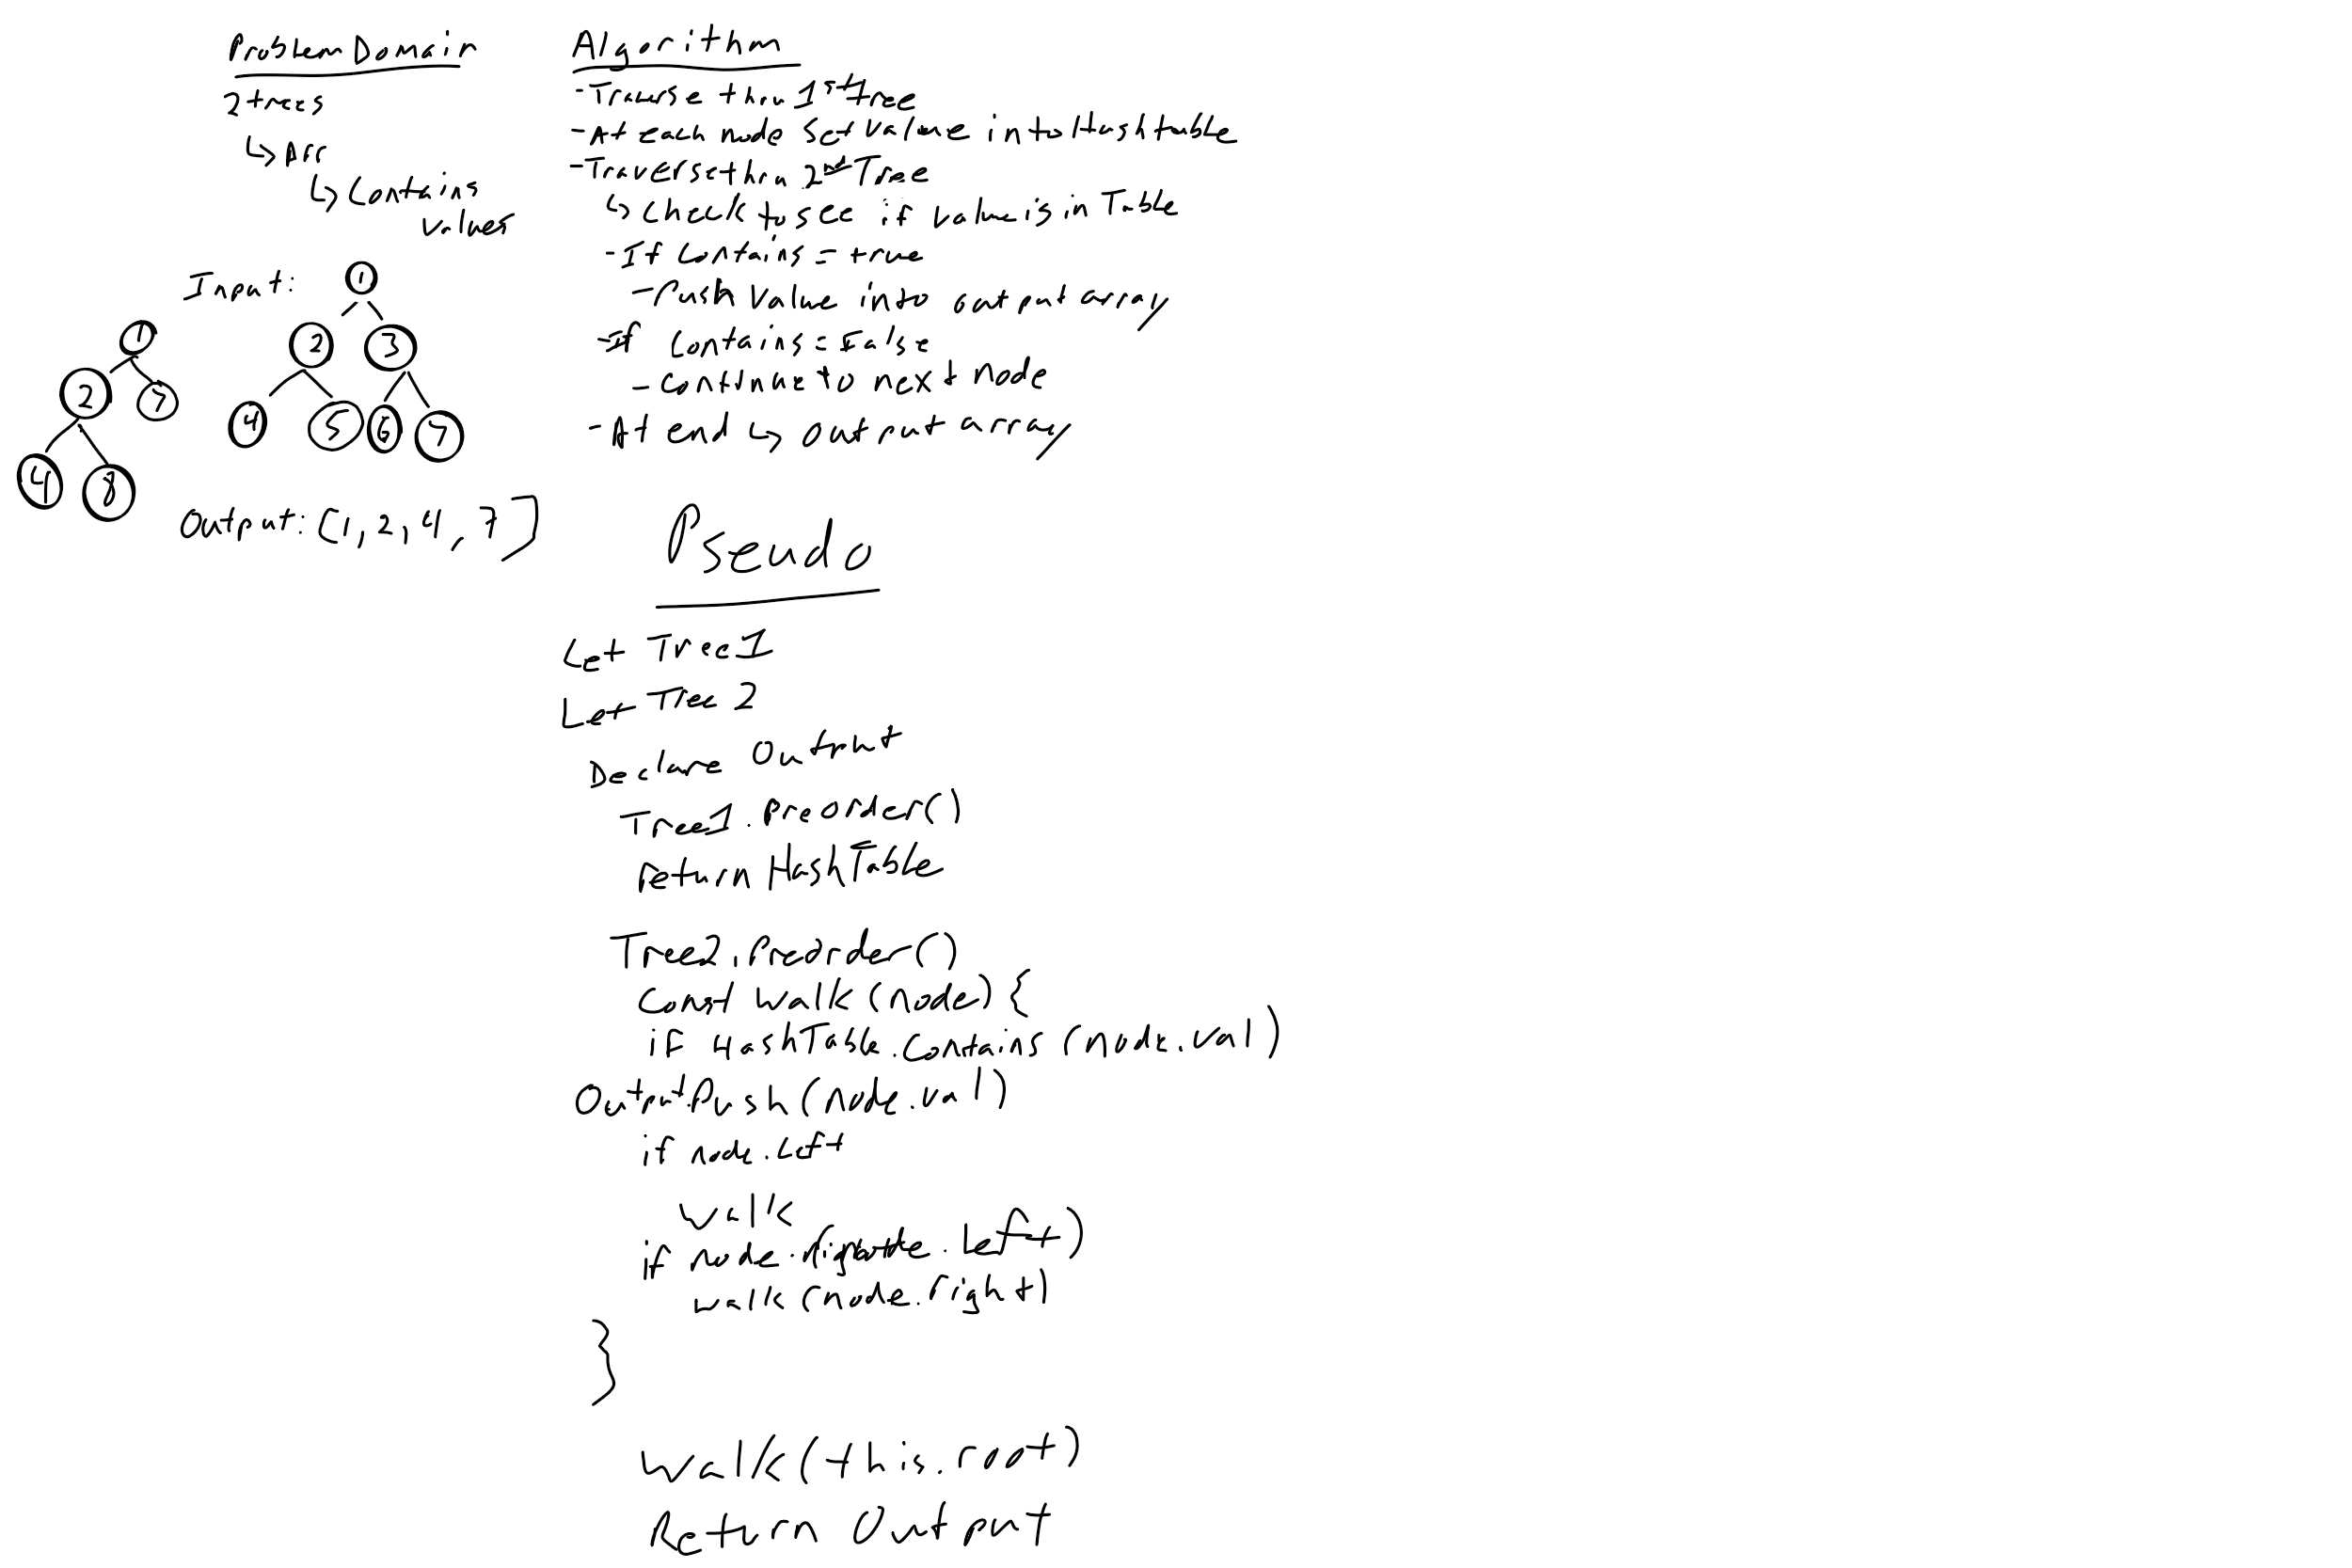 Problem Domain
2 trees
↳ Arr
↳ Contains
values
Input:
1
2 7
4 8
1
2 3
4 5 6 7
Output: [1, 2, 4, 7]
Algorithm
- Traverse thru 1st tree
- At each node set value into Hashtable
- Traverse thru 2nd Tree
↳ check to see if value is in Table
- If contains = true
- Push value into output array
- If contains = false
- Continue to next node
- At end ↳ output array
Pseudo
Let Tree1
Let Tree 2
Declare Output
Tree1.Preorder()
return HashTable
Tree2.Preorder()
Const walk (node) {
if HashTable.Contains (node.val)
Output.Push (node.val)
if node.left
walk
if node.right .left)
walk (node.right)
}
walk (this.root)
Return Output